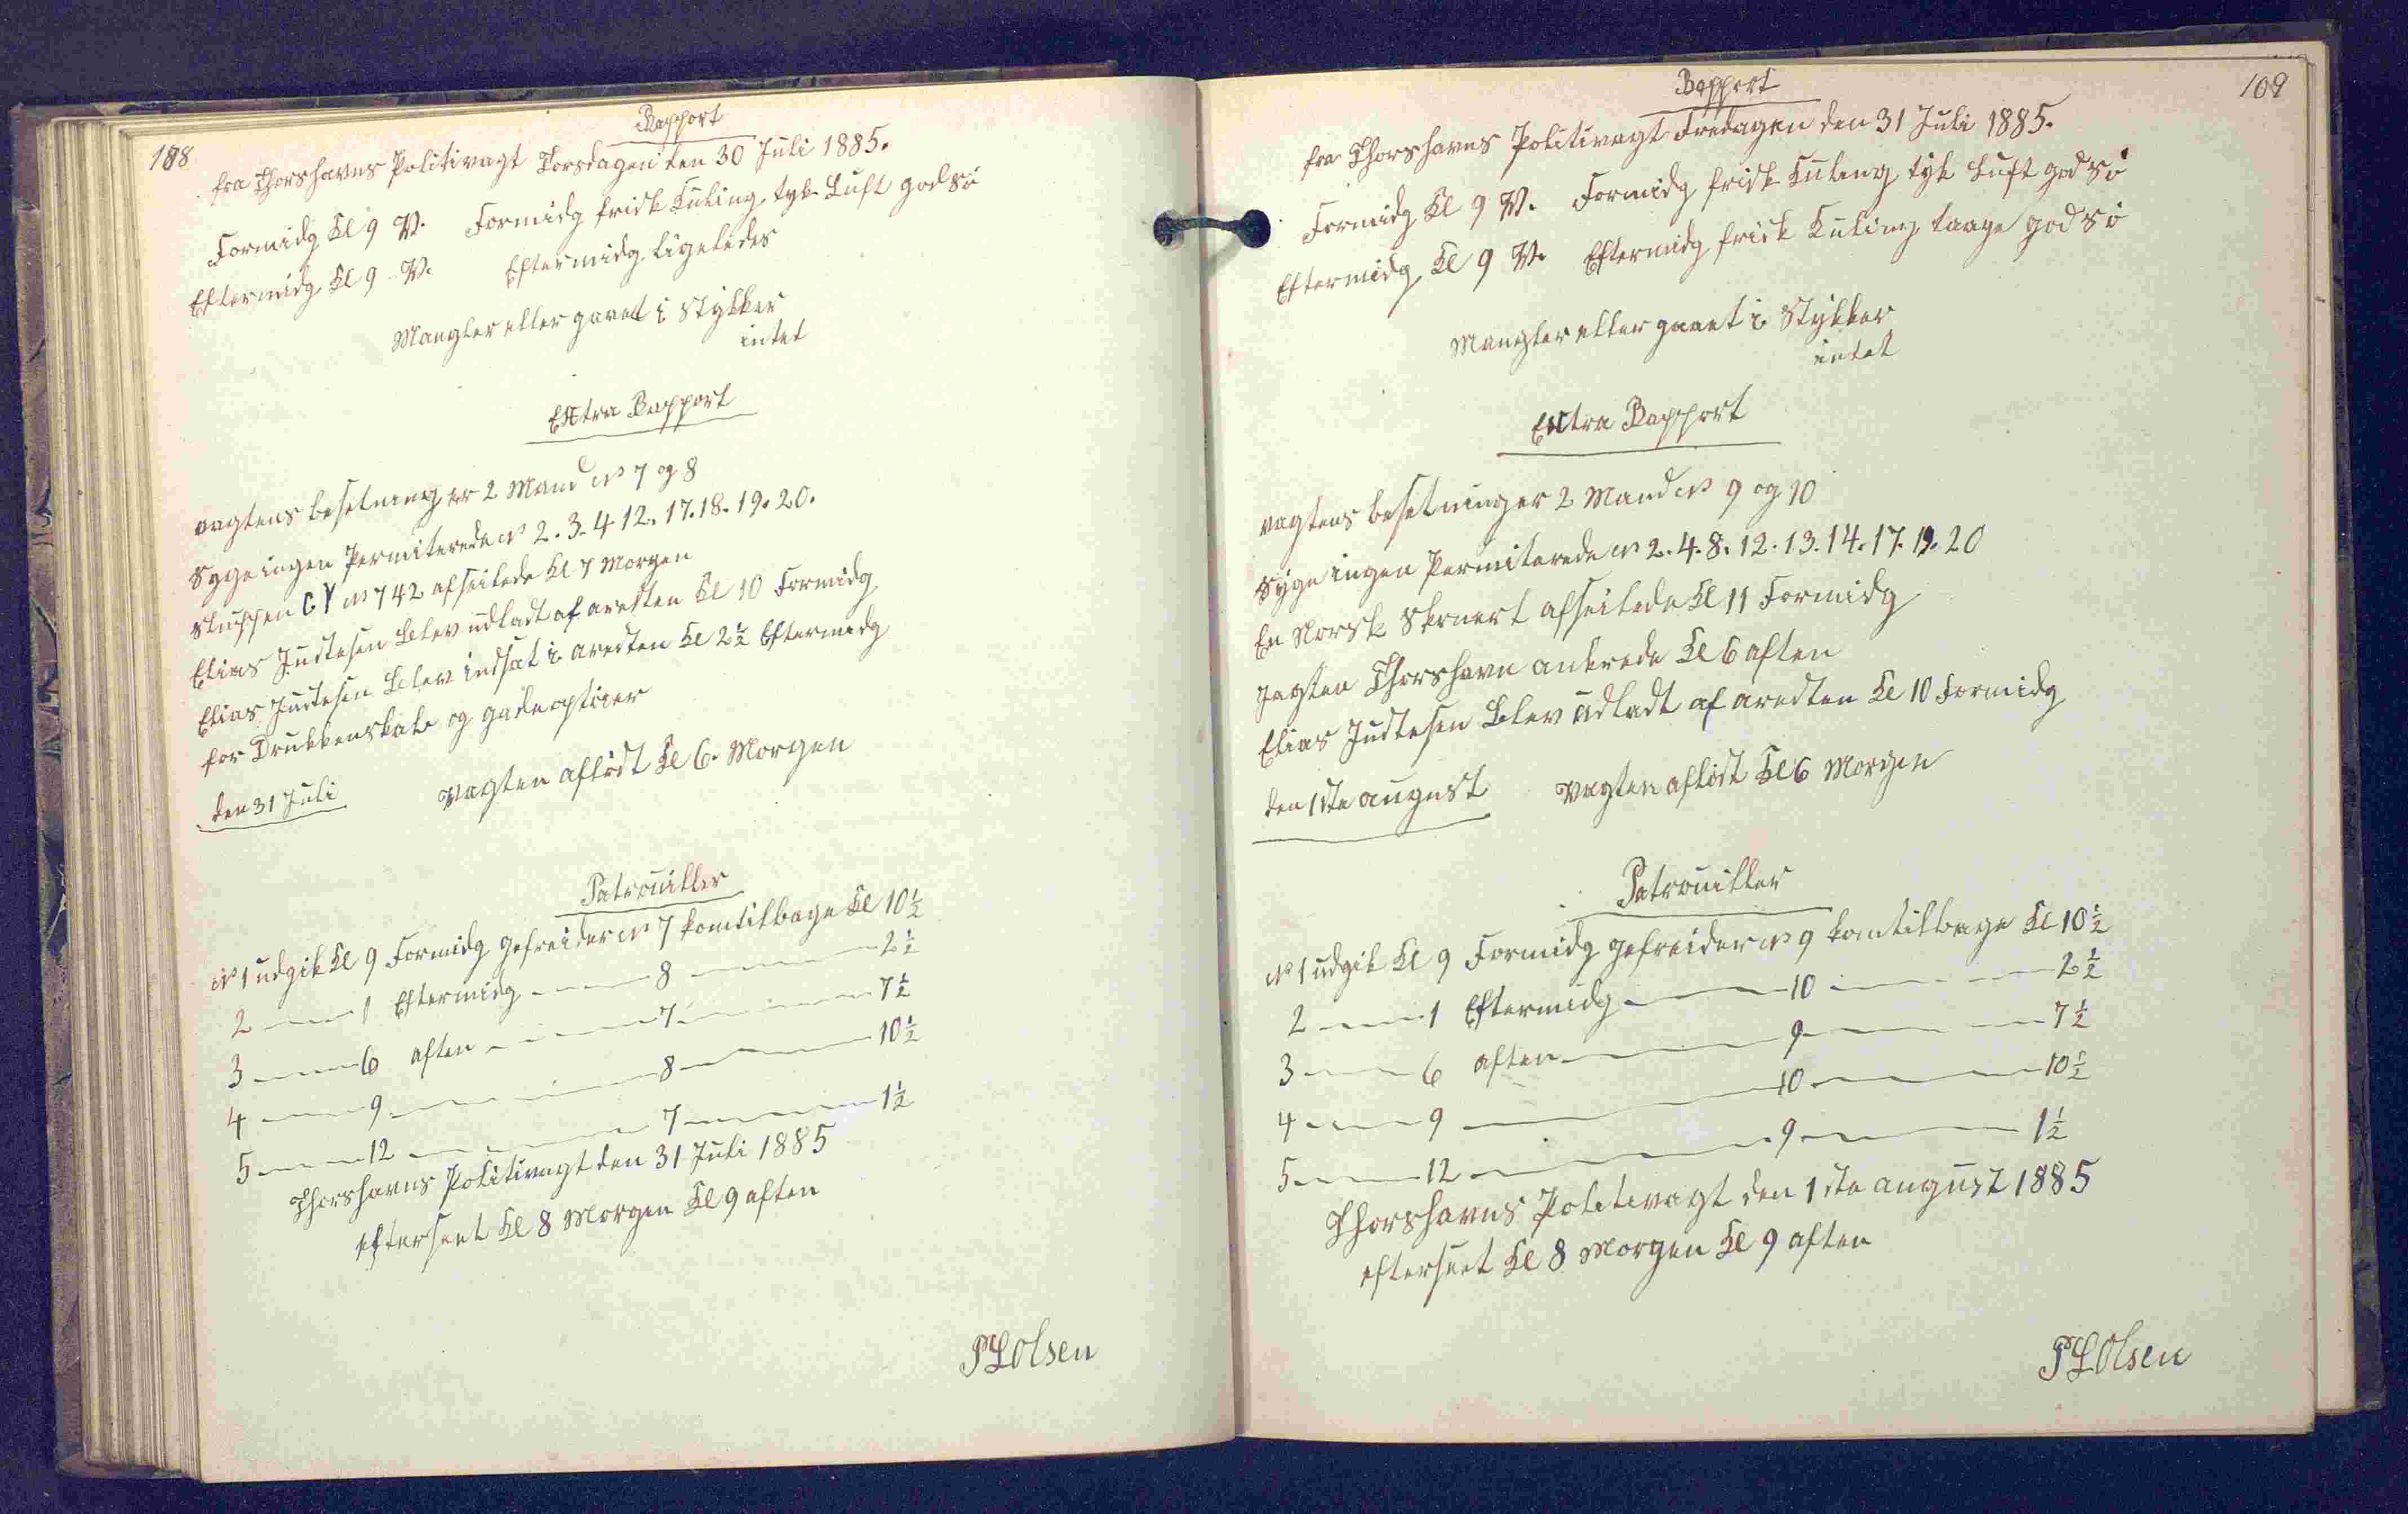 188
Rapport
fra Thorshavns Politivagt Torsdagen den 30 Juli 1885.
Formidg Kl 9 V. Formidg frisk Kuling tyk Luft god Sö
Eftermidg Kl 9 V. Eftermidg ligeledes
Mangler eller gaaet i Stykker
intet
Extra Rapport
vagtens besetning er 2 Mand No 7 og 8
Syge ingen Permiterede No 2. 3. 4 12. 17. 18. 19. 20.
Sluppen GY No 742 afseilede Kl 7 Morgen
Elias Justesen Blev udladt af aresten Kl 10 Formidg
Elias Justesen Blev indsat i aresten Kl 2½ Eftermidg
for Drukkenskab og gadeoptöier
den 31 Juli Vagten aflöst Kl 6. Morgen
Patrouiller
No 1 udgik Kl 9 Formidg gefreider No 7 kom tilbage Kl 10½
2 — 1 Eftermidg — 8 — 2½
3 — 6 aften — 7 — 7½
4 — 9 — 8 — 10½
5 — 12 — 7 — 1½
Thorshavns Politivagt den 31 Juli 1885
efterseet Kl 8 Morgen Kl 9 aften
PL Olsen
109
Rapport
fra Thorshavns Politivagt Fredagen den 31 Juli 1885.
Formidg Kl 9 V. Formidg frisk Kuling tyk Luft god Sö
Eftermidg Kl 9 V. Eftermidg frisk Kuling taage god Sö
Mangler eller gaaet i Stykker
intet
Extra Rapport
vagtens besetning er 2 Mand No 9 og 10
Syge ingen Permiterede No 2. 4. 8. 12. 13. 14. 17. 19. 20
En Norsk Skonert afseilede Kl 11 Formidg
Jagten Thorshavn ankrede Kl 6 aften
Elias Justesen Blev udladt af aresten Kl 10 Formidg
den 1ste august Vagten aflöst Kl 6 Morgen
Patrouiller
No 1 udgik Kl 9 Formidg gefreider No 9 kom tilbage Kl 10½
2 — 1 Eftermidg — 10 — 2½
3 — 6 aften — 9 — 7½
4 — 9 — 10 — 10½
5 — 12 — 9 — 1½
Thorshavns Politivagt den 1ste august 1885
efterseet Kl 8 Morgen Kl 9 aften
PL Olsen